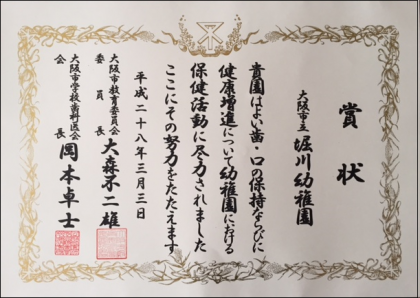 賞状
大阪市立 堀川幼稚園
貴園はよい歯・口の保持ならびに
健康増進について幼稚園における
保健活動に尽力されました
ここにその努力をたたえます
平成二十八年三月三日
大阪市教育委員会
委員長 大森不二雄
大阪市学校歯科医会
会長 岡本卓士